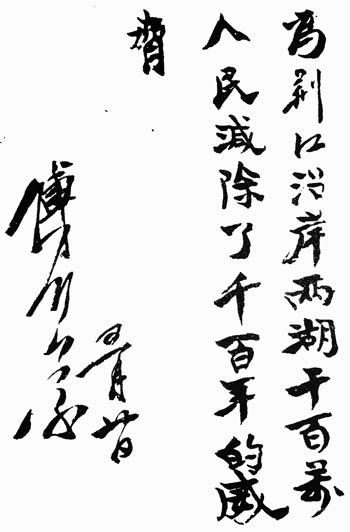 為荆江沿岸兩湖千百萬
人民減除了千百年的威
脅
傅作義